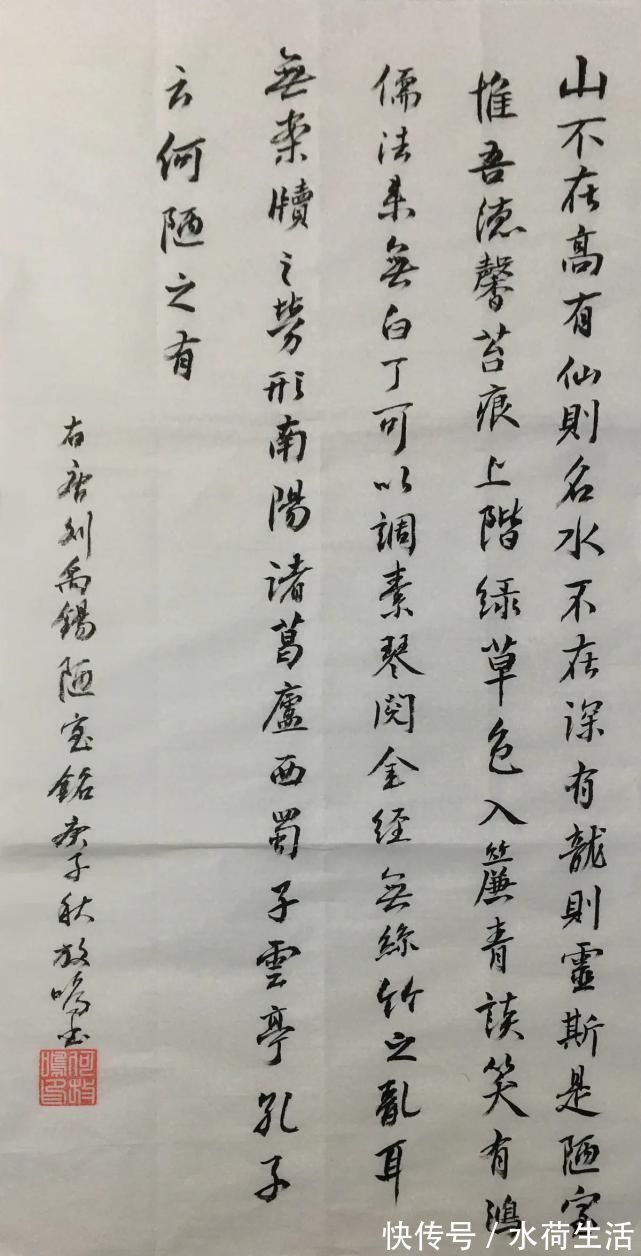 山不在高有仙則名水不在深有龍則靈斯是陋室
惟吾德馨苔痕上階緑草色入簾青談笑有鴻
儒往來無白丁可以調素琴閱金經無絲竹之亂耳
無案牘之勞形南陽諸葛廬西蜀子雲亭孔子
云何陋之有
右唐劉禹錫陋室銘庚子秋放鳴書
何放鳴印
快传号／水荷生活